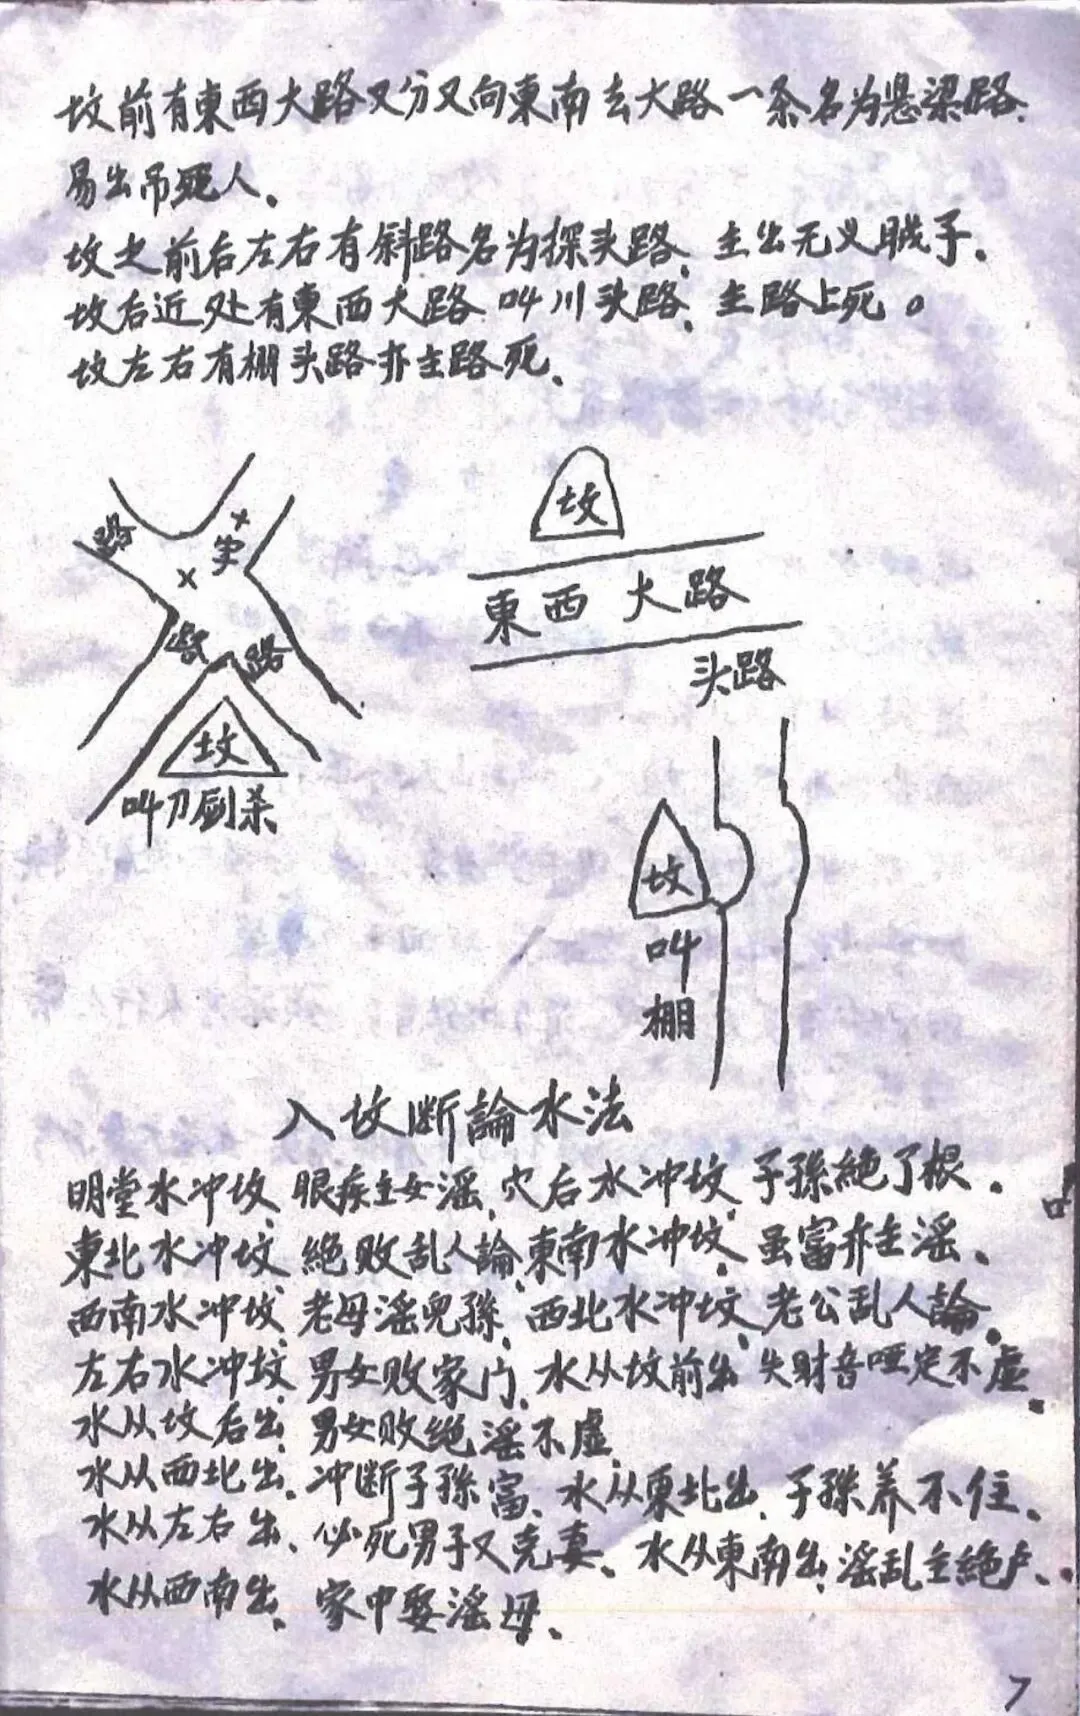 坟前有東西大路又分叉向東南去大路一条名为悬梁路.
易出吊死人.
坟之前后左右有斜路名为探头路、主出无义贼子.
坟后近处有東西大路.叫川头路、主路上死。
坟左右有棚头路亦主路死、
坟
路
東西大路
头路
路
坟
叫刀劍杀
坟
叫
棚
入坟断論水法
明堂水冲坟、眼疾主女滛、穴后水冲坟、子孫絶了根.
東北水冲坟、絶败乱人論、東南水冲坟、虽富亦主滛、
西南水冲坟、老母滛兒孫、西北水冲坟、老公乱人論。
左右水冲坟、男女败家门、水从坟前出失财音哑定不虚.
水从坟后出、男女败绝滛不虚.
水从西北出、冲断子孫富、水从東北出、子孫养不住、
水从左右出、必死男子又克妻、水从東南出、滛乱主絶户、
水从西南出、家中娶滛母、
7